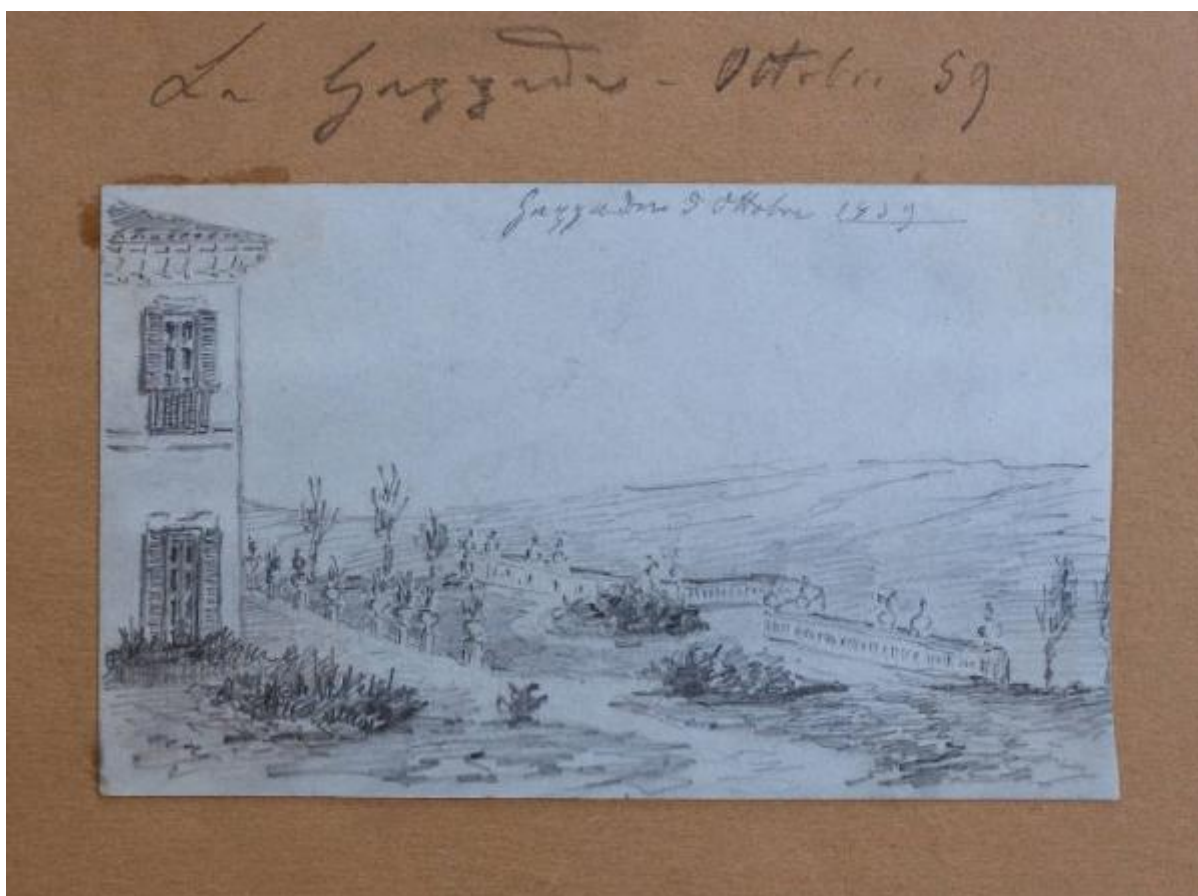 La Gazzada - Ottobre 59
Gazzada 9 Ottobre 1859